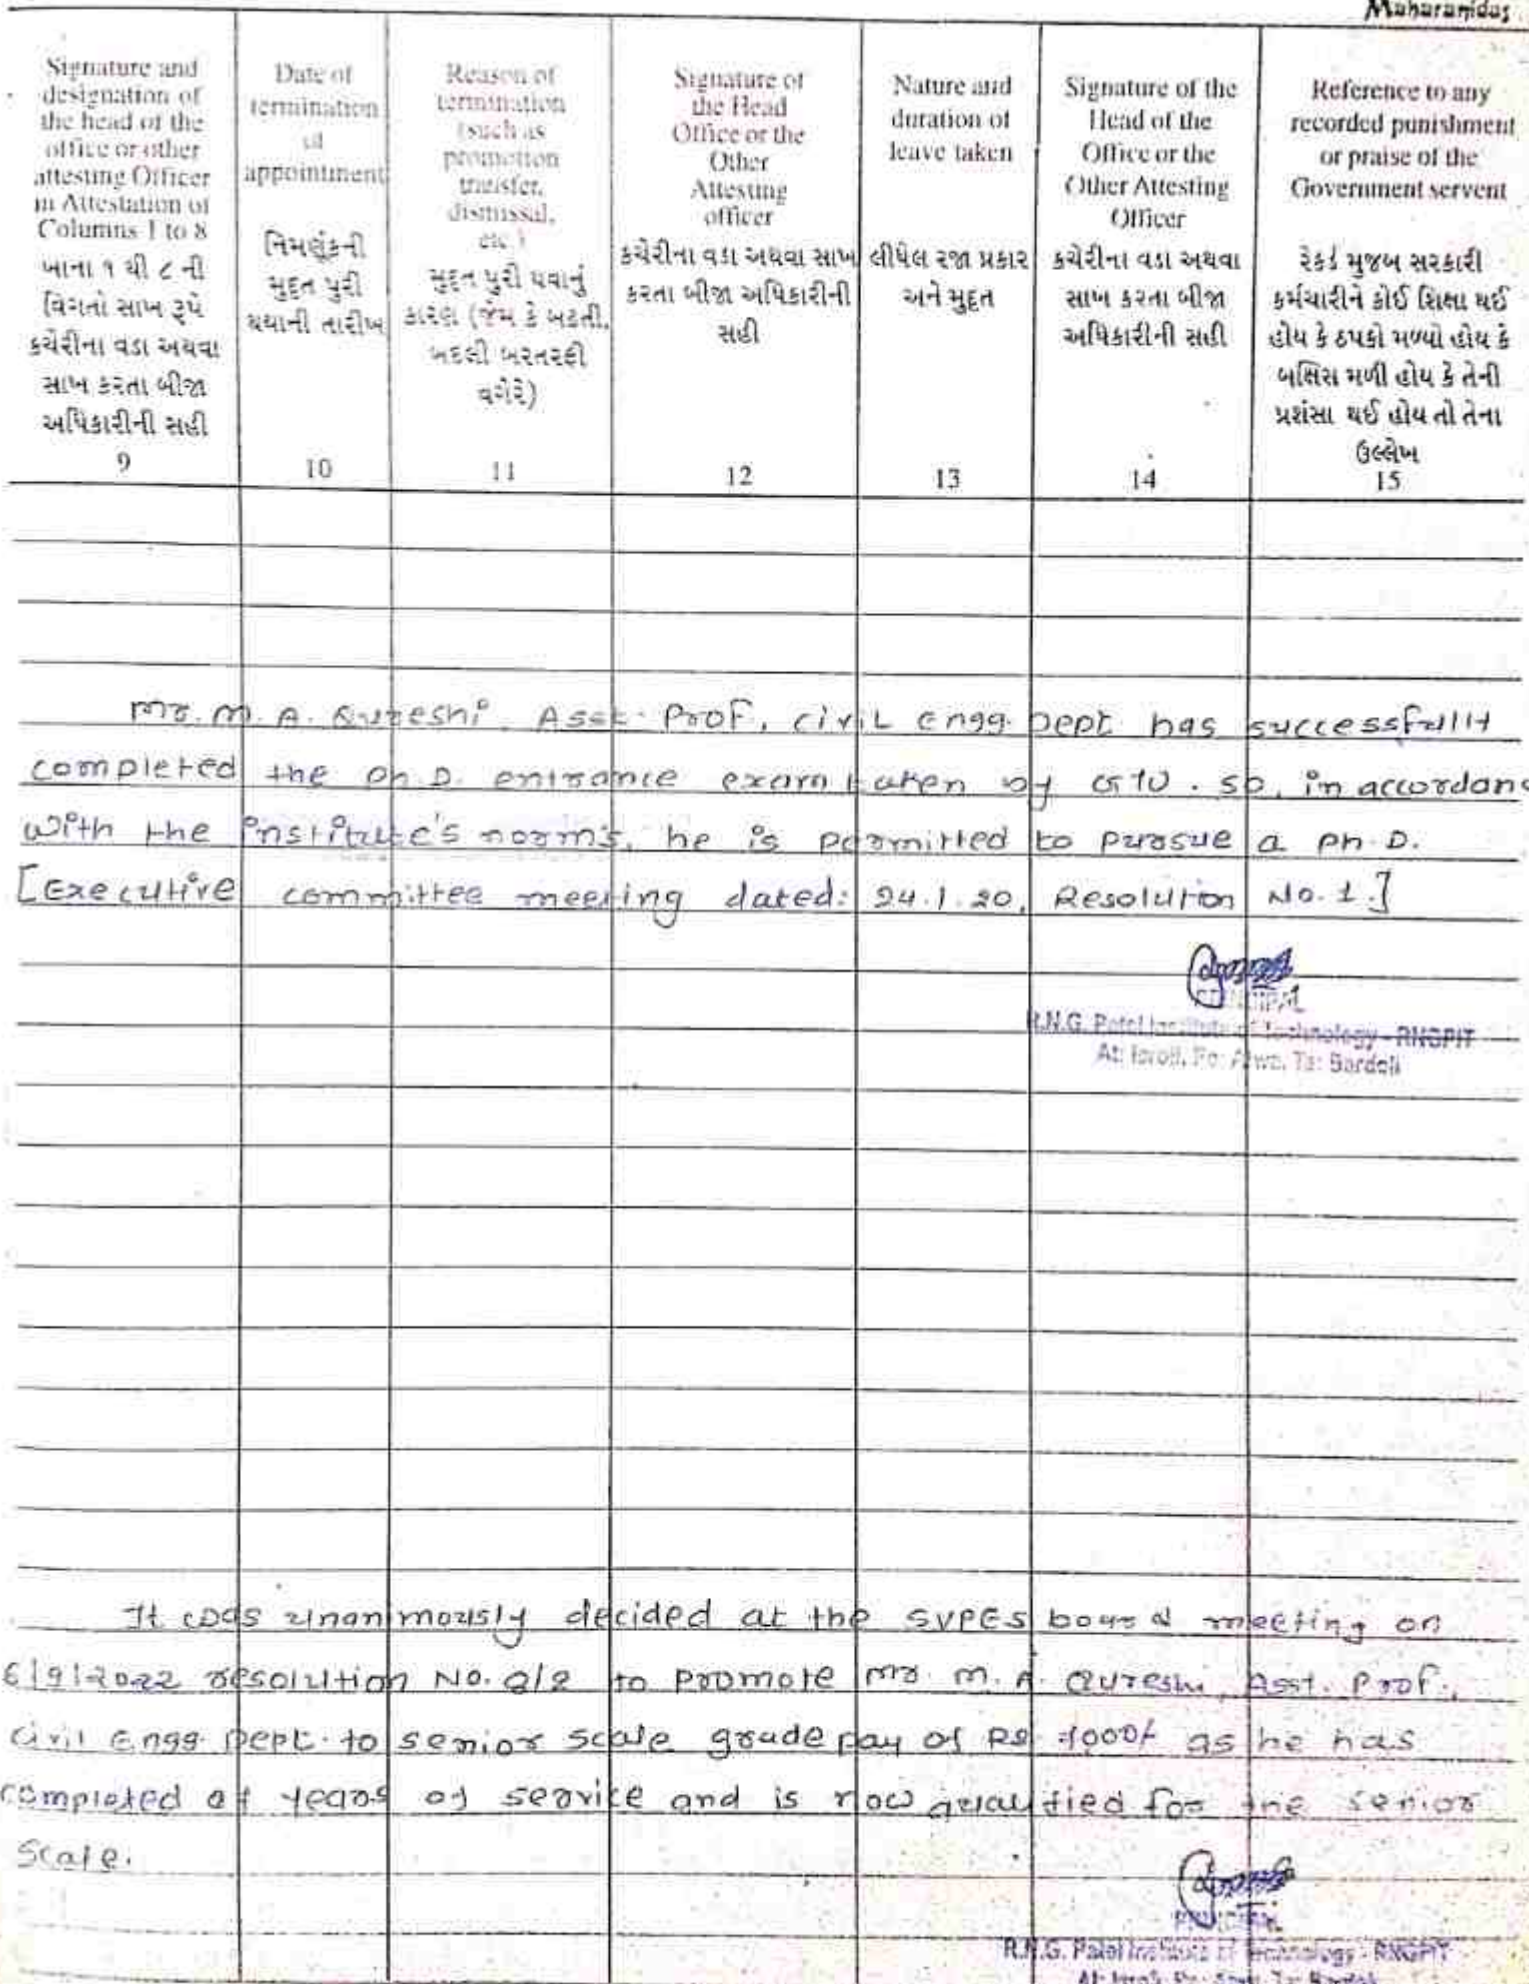 Maharanidas
Signature and designation of the head of the office or other attesting Officer in Attestation of Columns 1 to 8
ખાના ૧ થી ૮ ની વિગતો સાખ રૂપે કચેરીના વડા અથવા સાખ કરતા બીજા અધિકારીની સહી
9
Date of termination of appointment
નિમણુંકની મુદ્દત પુરી થયાની તારીખ
10
Reason of termination (such as promotion transfer, dismissal, etc.)
મુદ્દત પુરી થવાનું કારણ (જેમ કે બઢતી, બદલી બરતરફી વગેરે)
11
Signature of the Head Office or the Other Attesting officer
કચેરીના વડા અથવા સાખ કરતા બીજા અધિકારીની સહી
12
Nature and duration of leave taken
લીધેલ રજા પ્રકાર અને મુદ્દત
13
Signature of the Head of the Office or the Other Attesting Officer
કચેરીના વડા અથવા સાખ કરતા બીજા અધિકારીની સહી
14
Reference to any recorded punishment or praise of the Government servent
રેકર્ડ મુજબ સરકારી કર્મચારીને કોઈ શિક્ષા થઈ હોય કે ઠપકો મળ્યો હોય કે બક્ષિસ મળી હોય કે તેની પ્રશંસા થઈ હોય તો તેના ઉલ્લેખ
15
Mr. M. A. Qureshi, Asst. Prof, civil Engg. Dept. has successfully
completed the Ph.D. entrance exam taken by GTU. So, in accordanc
with the institute's norms, he is permitted to pursue a Ph.D.
[Executive committee meeting dated: 24.1.20, Resolution No. 1.]
PRINCIPAL
R.N.G. Patel Institute of Technology - RNGPIT
At: Isroli, Po: Afwa, Ta: Bardoli
It was unanimously decided at the SVPES board meeting on
6/9/2022 resolution No. 2/2 to promote Mr. M. A. Qureshi, Asst. Prof.,
Civil Engg. Dept. to senior scale grade pay of Rs. as he has
completed years of service and is now qualified for the senior
scale.
PRINCIPAL
R.N.G. Patel Institute of Technology - RNGPIT
At: Isroli, Po: Afwa, Ta: Bardoli